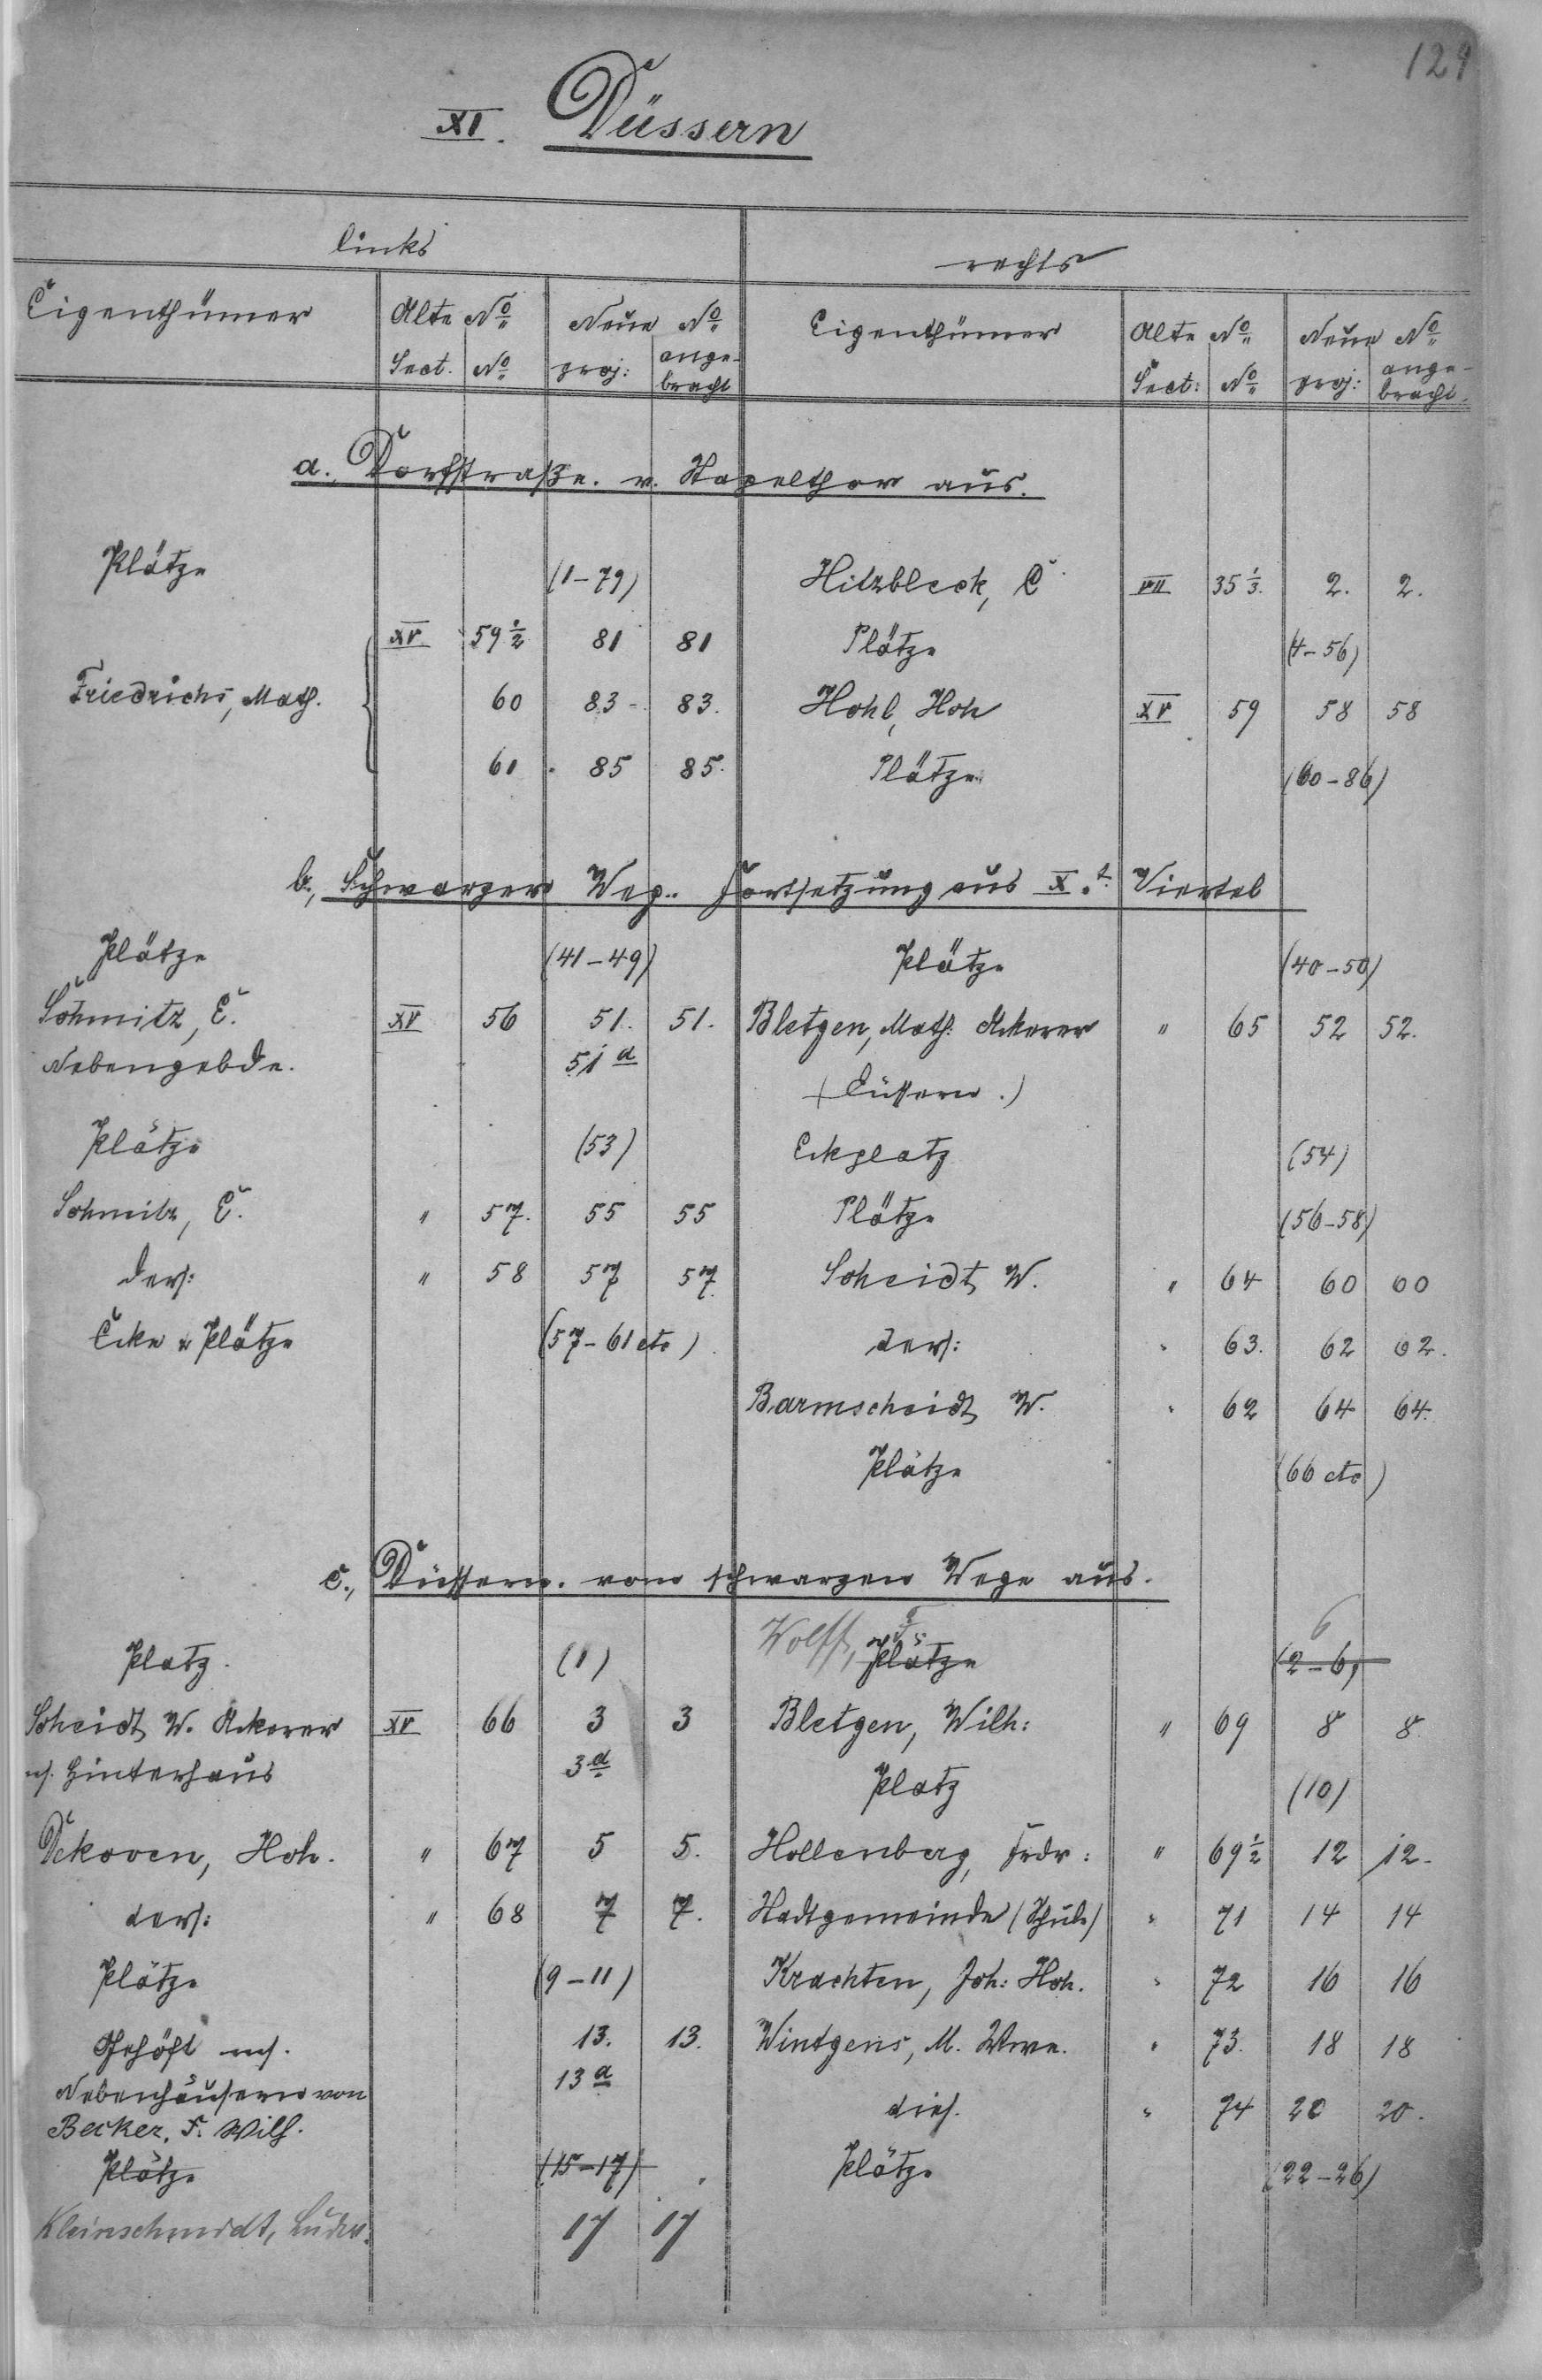 129
XI. Düssern
links rechts
Eigenthümer Alte No Neue No Eigenthümer Alte No Neue No
Sect. No proj: ange-bracht Sect: No proj: ange-bracht.
a. Dorfstraße. v. Stapelthor aus.
Plätze (1-79) Hitzbleck, C VII 35 1/3. 2. 2.
XV 59 1/2 81 81 Plätze (4-56)
Friedrichs, Math. 60 83 83. Hohl, Hch XV 59 58 58
61 85 85. Plätze (60-86)
b., Schwarzer Weg. Fortsetzung aus X.t Viertel
Plätze (41-49) Plätze (40-50)
Schmitz, C. XV 56 51. 51. Bletgen, Math. Ackerer " 65 52 52.
Nebengebde. 51 a
(Düssern.)
Plätze (53) Eckplatz (54)
Schmitz, C. " 57. 55 55 Plätze (56-58)
ders: " 58 57 57. Scheidt W. " 64 60 60
Ecke & Plätze (57-61 etc) ders: " 63. 62 62.
Barmscheidt W. " 62 64 64.
Plätze (66 etc)
c., Düssern. vom schwarzen Wege aus.
Wolff, 6
Platz. (1) Plätze (2-6)
Scheidt W. Ackerer XV 66 3 3 Bletgen, Wilh: " 69 8 8
m. Hinterhaus 3 a Platz (10)
Dekoven, Hch. " 67 5 5. Hollenberg, Frdr: " 69 1/2 12 12.
ders: " 68 7 7. Stadtgemeinde (Schule) " 71 14 14
Plätze (9-11) Krachten, Joh: Hch. " 72 16 16
Gehöft m. 13. 13. Wintgens, M. Wwe. " 73. 18 18
Nebenhäusern von 13 a
dies. " 74 20 20.
Becker, F. Wilh.
Plätze (15-17) Plätze (22-26)
Kleinschmidt, Ludw. 17 17